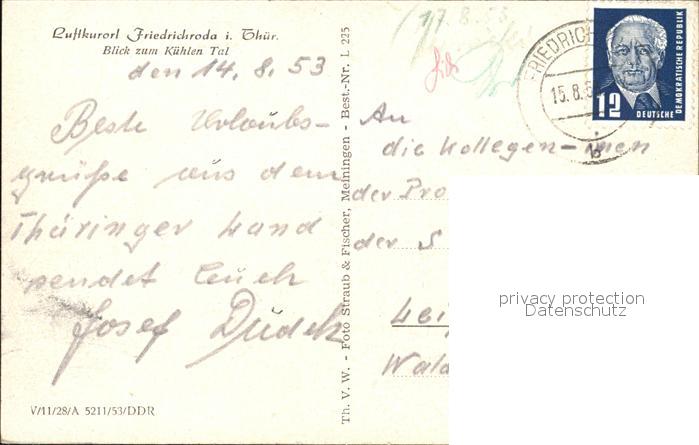 Luftkurort Friedrichroda i. Thür.
Blick zum Kühlen Tal
den 14. 8. 53
Beste Urlaubs-
grüße aus dem
Thüringer Land
sendet Euch
Josef
V/11/28/A 5211/53/DDR
Th. V. W. - Foto Straub & Fischer, Meiningen - Best.-Nr. L 225
17.8.53
FRIEDRICH
15.8.5
12
DEUTSCHE
DEMOKRATISCHE REPUBLIK
An
die Kollegen-innen
der Pro
der S
Lei
Wald
privacy protection
Datenschutz